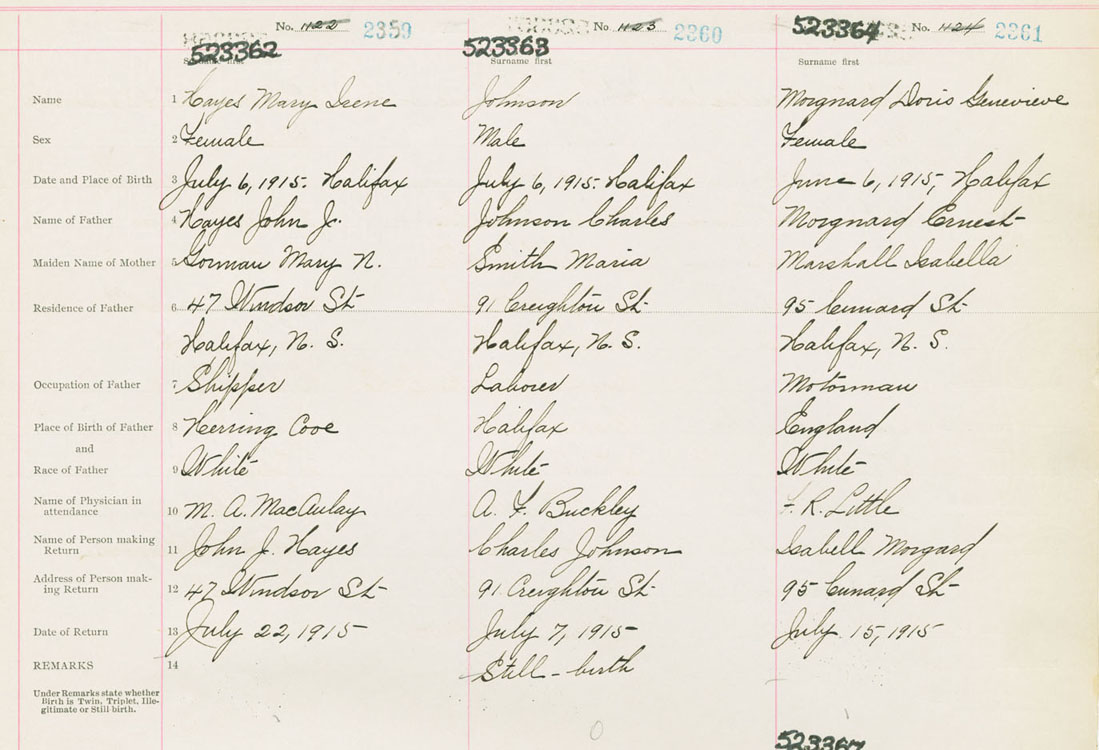 No. 1122 2359 No 1123 2360 No. 1124 2361
523362 523363 523364
Surname first Surname first Surname first
Name 1 Hayes Mary Irene Johnson Morgnard Doris Genevieve
Sex 2 Female Male Female
Date and Place of Birth 3 July 6, 1915. Halifax July 6, 1915. Halifax June 6, 1915, Halifax
Name of Father 4 Hayes John J. Johnson Charles Morgnard Ernest
Maiden Name of Mother 5 Gorman Mary N. Smith Maria Marshall Isabella
Residence of Father 6 47 Windsor St 91 Creighton St 95 Cunard St
Halifax, N. S. Halifax, N. S. Halifax, N. S.
Occupation of Father 7 Shipper Laborer Motorman
Place of Birth of Father 8 Herring Cove Halifax England
and
Race of Father 9 White White White
Name of Physician in
attendance 10 M. A. MacAulay A. F. Buckley F. R. Little
Name of Person making
Return 11 John J. Hayes Charles Johnson Isabell Morgard
Address of Person mak-
ing Return 12 47 Windsor St 91 Creighton St 95 Cunard St
Date of Return 13 July 22, 1915 July 7, 1915 July 15, 1915
REMARKS 14 Still-birth
Under Remarks state whether
Birth is Twin, Triplet, Ille-
gitimate or Still-birth.
523367